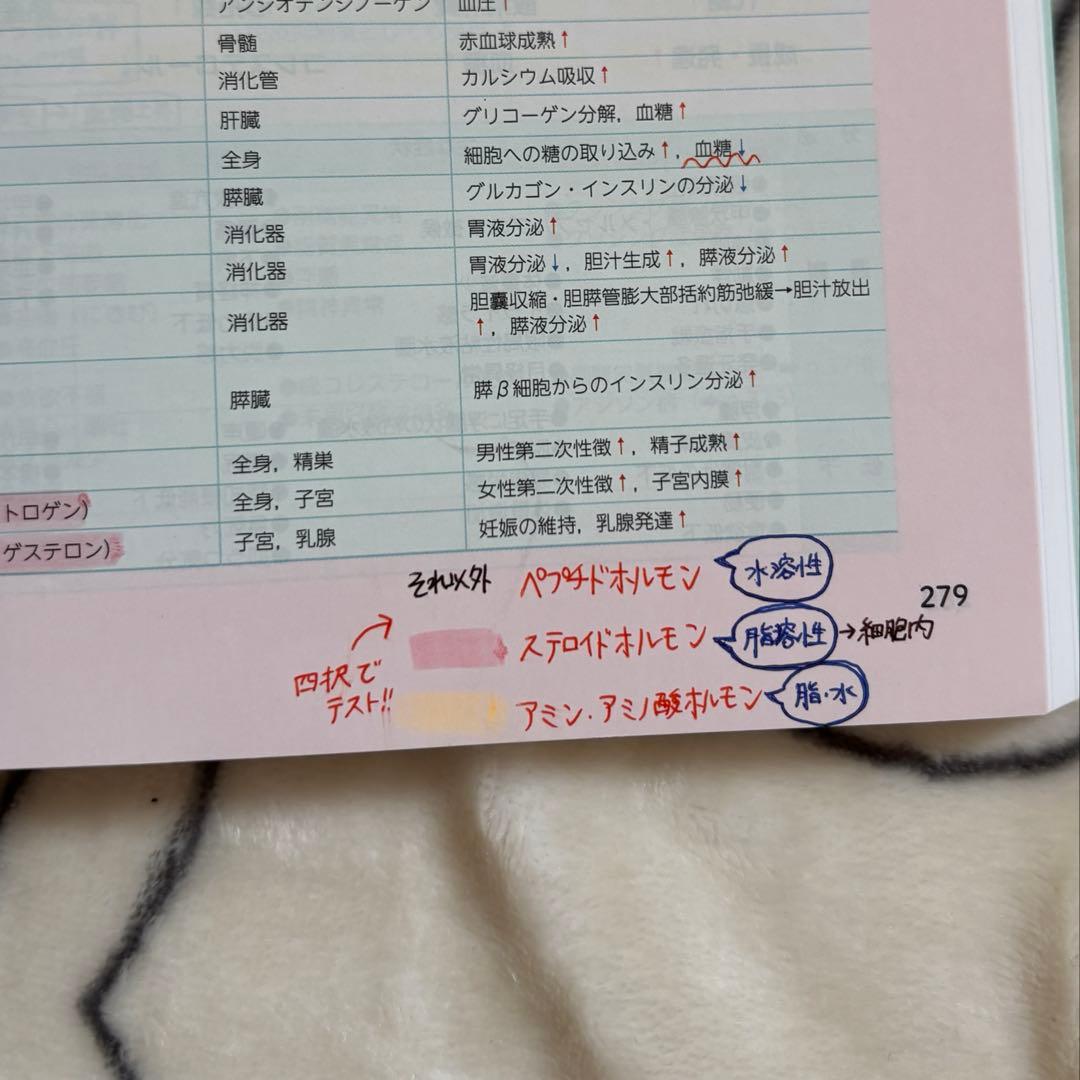 アンジオテンシノーゲン 血圧↑
骨髄 赤血球成熟↑
消化管 カルシウム吸収↑
肝臓 グリコーゲン分解，血糖↑
全身 細胞への糖の取り込み↑，血糖↓
膵臓 グルカゴン・インスリンの分泌↓
消化器 胃液分泌↑
消化器 胃液分泌↓，胆汁生成↑，膵液分泌↑
消化器 胆嚢収縮・胆膵管膨大部括約筋弛緩→胆汁放出
↑，膵液分泌↑
膵臓 膵β細胞からのインスリン分泌↑
全身，精巣 男性第二次性徴↑，精子成熟↑
トロゲン） 全身，子宮 女性第二次性徴↑，子宮内膜↑
ゲステロン） 子宮，乳腺 妊娠の維持，乳腺発達↑
それ以外 ペプチドホルモン 水溶性
279
ステロイドホルモン 脂溶性 →細胞内
四択で
テスト!!
アミン・アミノ酸ホルモン 脂・水